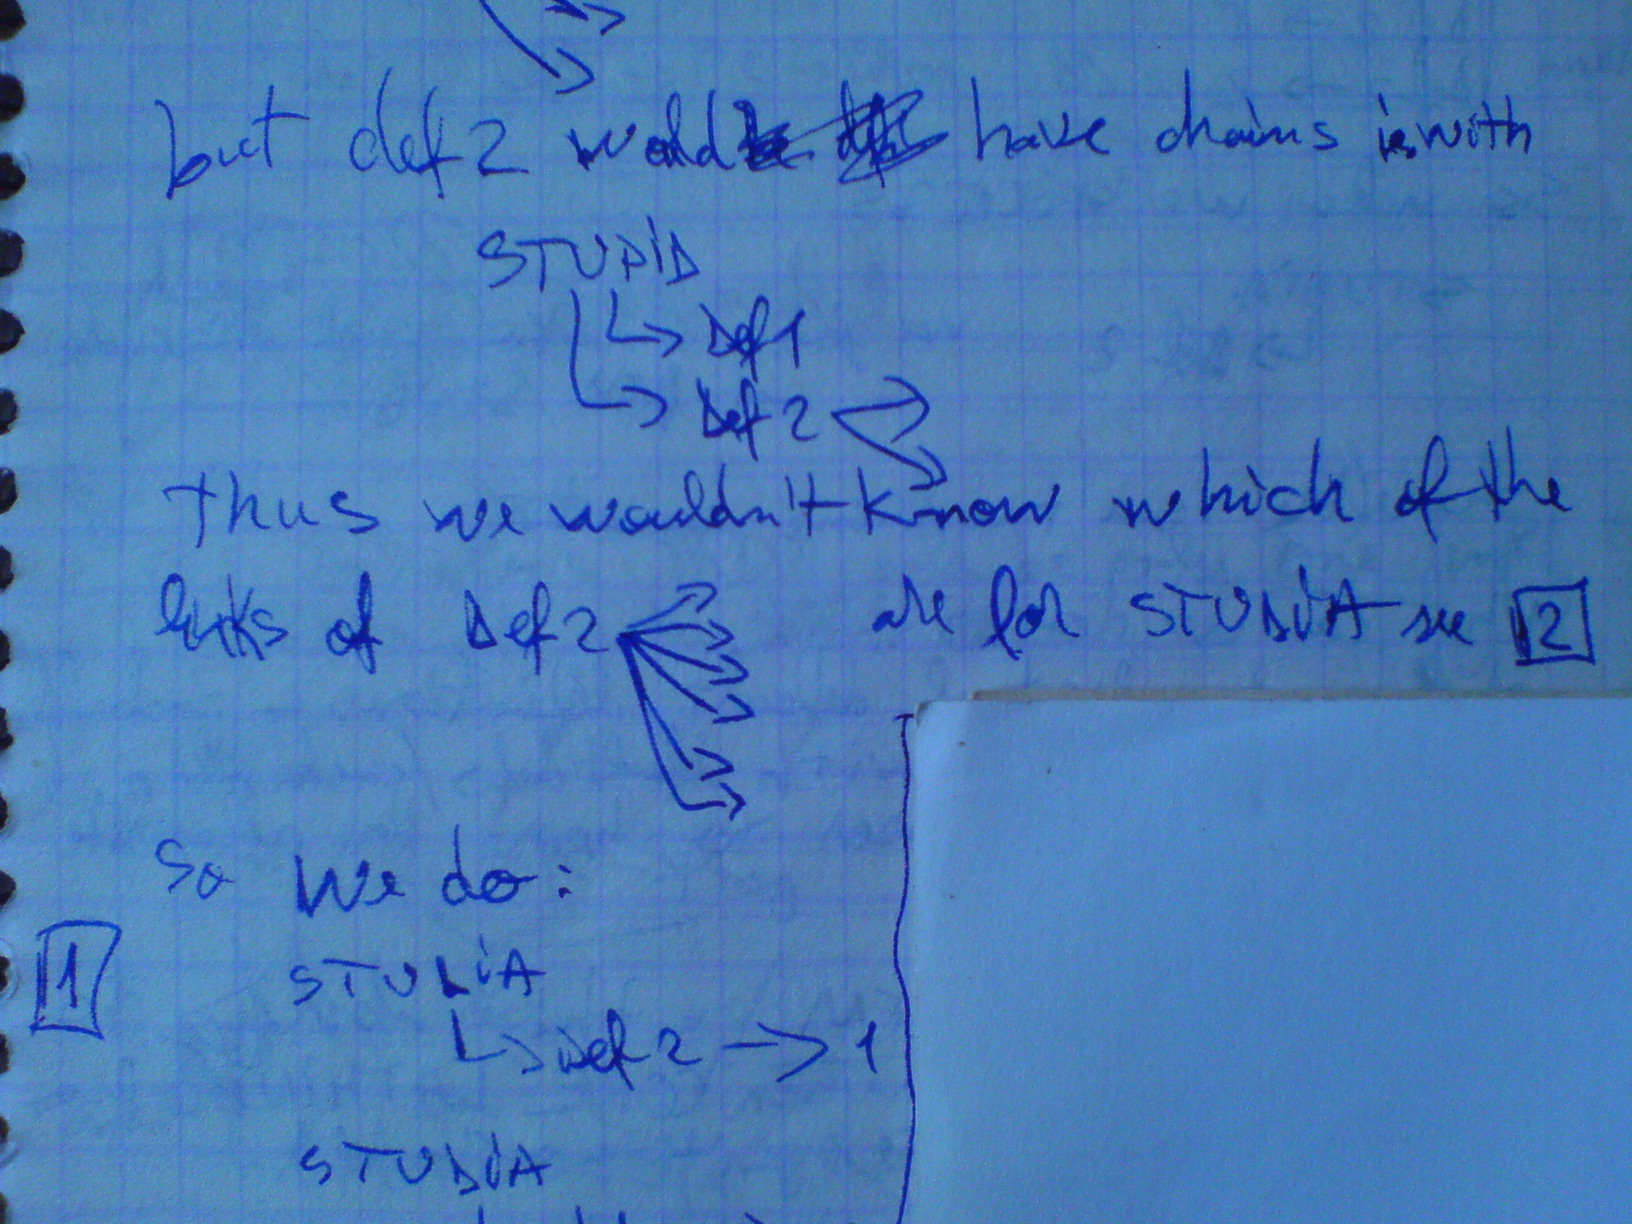 but def 2 would have chains with
STUDIA
Def 1
Def 2
thus we wouldn't know which of the
links of Def 2 are for STUDIA see 2
So we do:
1
STUDIA
Def 2 → 1
STUDIA